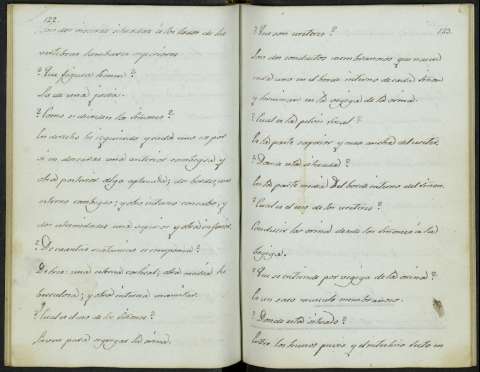 122.
Son dos viscéras situadas á los lados de las
vertebras lumbares superiores.
? Que figura tienen?
La de una judia.
? Como se dividen los riñones?
En derecho é izquierdo y cada uno de por
si en dos caras una anterior combexa y
otra posterior algo aplanada; dos bordes, uno
interno combexo; y otro interno concabo; y
dos estremidades una superior y otra inferior.
? De cuantas sustancias se compone?
De tres: una esterna cortical; otra media tu
bulosa; y otra interna mamilar.
? Cual es el uso de los riñones?
Sirven para segregar la orina.
123.
? Que son ureteres?
Son dos conductos membranosos que nacen
cada uno en el borde interno de cada riñon
y terminan en la vegiga de la orina.
? Cual es la pelvis renal?
Es la parte superior y mas ancha del ureter.
? Donde está situada?
En la parte media del borde interno del riñon.
? Cual es el uso de los ureteres?
Conducir la orina desde los riñones á la
vegiga.
? Que se entiende por vegiga de la orina?
Es un saco musculo membranoso.
? Donde está situado?
Entre los huesos pubis y el intestino recto en